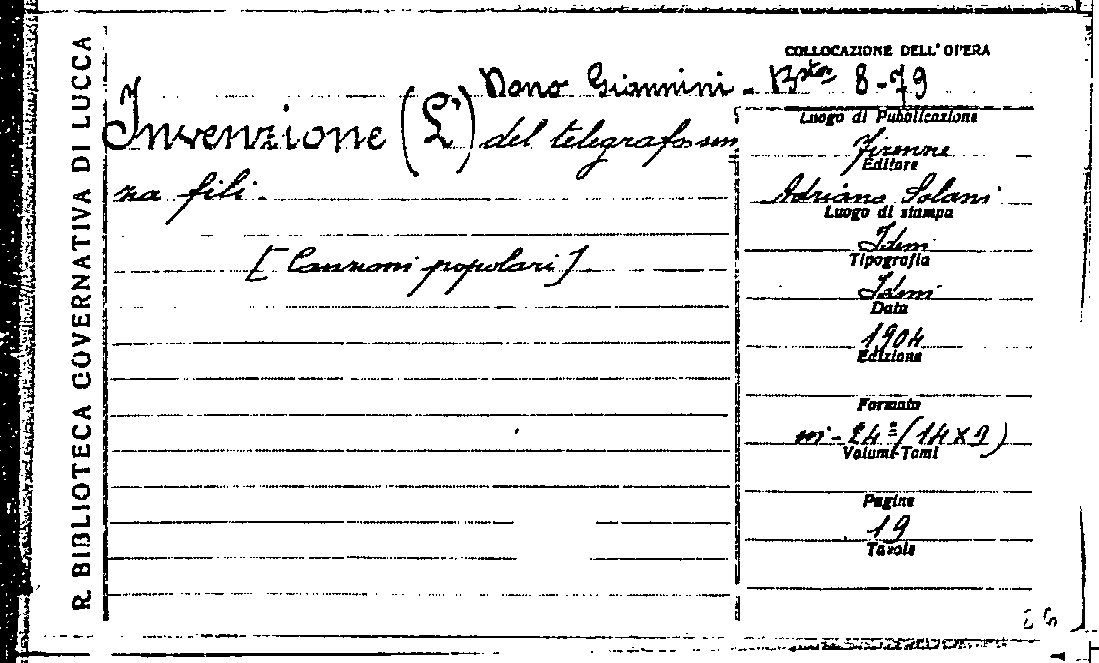 R. BIBLIOTECA GOVERNATIVA DI LUCCA
COLLOCAZIONE DELL'OPERA
Dono Giannini - Bta 8-79
Invenzione (L') del telegrafo sen
za fili.
[Canzoni popolari]
Luogo di Pubblicazione
Firenze
Editore
Adriano Salani
Luogo di stampa
Idem
Tipografia
Idem
Data
1904
Edizione
Formato
in-24º (14x9)
Volumi-Tomi
Pagine
19
Tavole